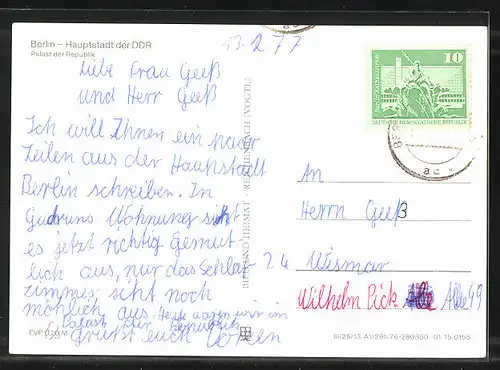 Berlin – Hauptstadt der DDR
Palast der Republik
13.2.77
Liebe Frau Geeß
und Herr Geeß
Ich will Ihnen ein paar
Zeilen aus der Hauptstadt
Berlin schreiben. In
Gudruns Wohnung sieht
es jetzt richtig Gemüt
lich aus, nur das Schlaf
zimmer sieht noch
möhlich aus. Heute waren wir im
Palast der Republik
Grüßt euch
EVP 0,20 M
BILD UND HEIMAT · REICHENBACH (VOGTL)
10
DEUTSCHE DEMOKRATISCHE REPUBLIK
An
Herrn Geeß
24 Wismar
Wilhelm Pick Allee 49
III/26/13 A1/291/76-280350 01 15 0155